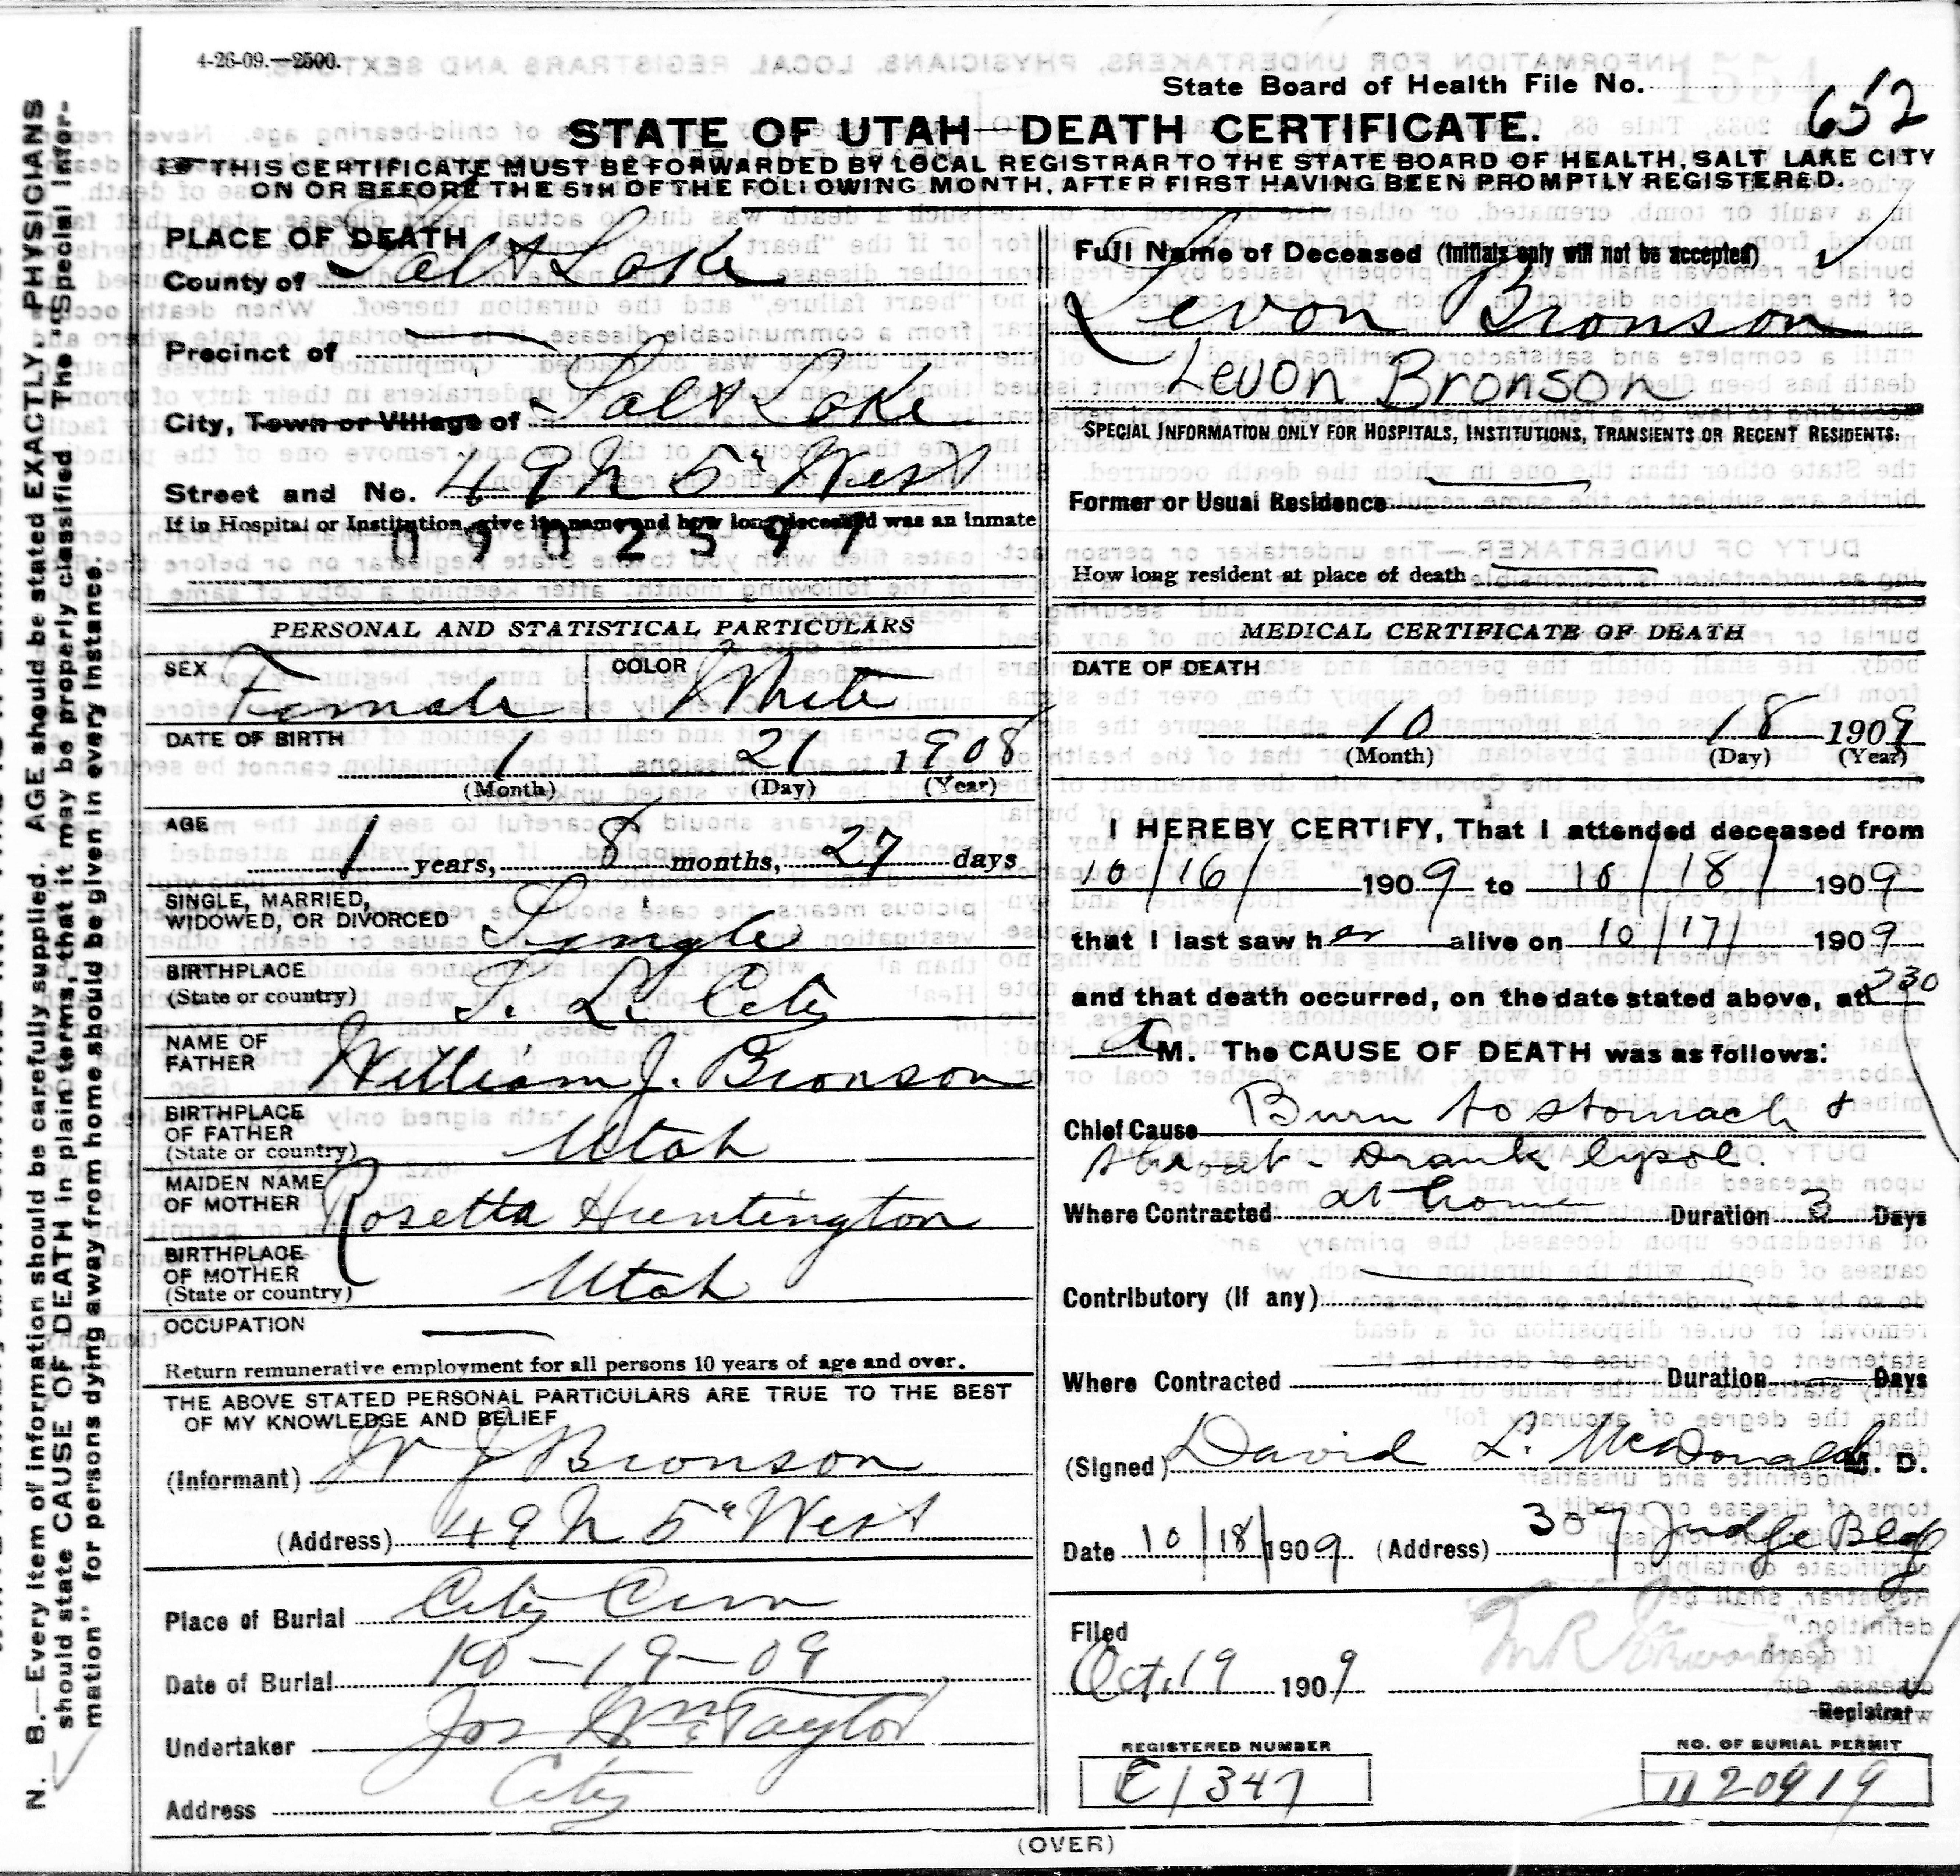 4-26-09.—2500.
State Board of Health File No.
652
STATE OF UTAH—DEATH CERTIFICATE.
THIS CERTIFICATE MUST BE FORWARDED BY LOCAL REGISTRAR TO THE STATE BOARD OF HEALTH, SALT LAKE CITY
ON OR BEFORE THE 5TH OF THE FOLLOWING MONTH, AFTER FIRST HAVING BEEN PROMPTLY REGISTERED.
N. B.—Every item of information should be carefully supplied. AGE should be stated EXACTLY. PHYSICIANS
should state CAUSE OF DEATH in plain terms, that it may be properly classified. The "Special Infor-
mation" for persons dying away from home should be given in every instance.
PLACE OF DEATH
County of Salt Lake
Precinct of
City, Town or Village of Salt Lake
Street and No. 49 N 5" West
If in Hospital or Institution, give its name and how long deceased was an inmate
PERSONAL AND STATISTICAL PARTICULARS
SEX Female COLOR White
DATE OF BIRTH
1 21 1908
(Month) (Day) (Year)
AGE
1 years, 8 months, 27 days
SINGLE, MARRIED,
WIDOWED, OR DIVORCED Single
BIRTHPLACE
(State or country) S. L. City
NAME OF
FATHER William J. Bronson
BIRTHPLACE
OF FATHER
(State or country) Utah
MAIDEN NAME
OF MOTHER Rosetta Huntington
BIRTHPLACE
OF MOTHER
(State or country) Utah
OCCUPATION
Return remunerative employment for all persons 10 years of age and over.
THE ABOVE STATED PERSONAL PARTICULARS ARE TRUE TO THE BEST
OF MY KNOWLEDGE AND BELIEF
(Informant) W J Bronson
(Address) 49 N 5" West
Place of Burial City Cem
Date of Burial 10-19-09
Undertaker Jos Wm Taylor
Address City
Full Name of Deceased (Initials only will not be accepted)
Levon Bronson
Levon Bronson
SPECIAL INFORMATION ONLY FOR HOSPITALS, INSTITUTIONS, TRANSIENTS OR RECENT RESIDENTS:
Former or Usual Residence
How long resident at place of death
MEDICAL CERTIFICATE OF DEATH
DATE OF DEATH
10 18 1909
(Month) (Day) (Year)
I HEREBY CERTIFY, That I attended deceased from
10/16/ 1909 to 10/18/ 1909
that I last saw her alive on 10/17/ 1909
and that death occurred, on the date stated above, at 230
A M. The CAUSE OF DEATH was as follows:
Chief Cause Burn to stomach &
throat - Drank lysol.
Where Contracted at home Duration 3 Days
Contributory (If any)
Where Contracted Duration Days
(Signed) David L. McDonald M. D.
Date 10/18/1909 (Address) 307 Judge Bldg
Filed
Oct. 19 1909
Registrar
REGISTERED NUMBER
E1347
NO. OF BURIAL PERMIT
(OVER)